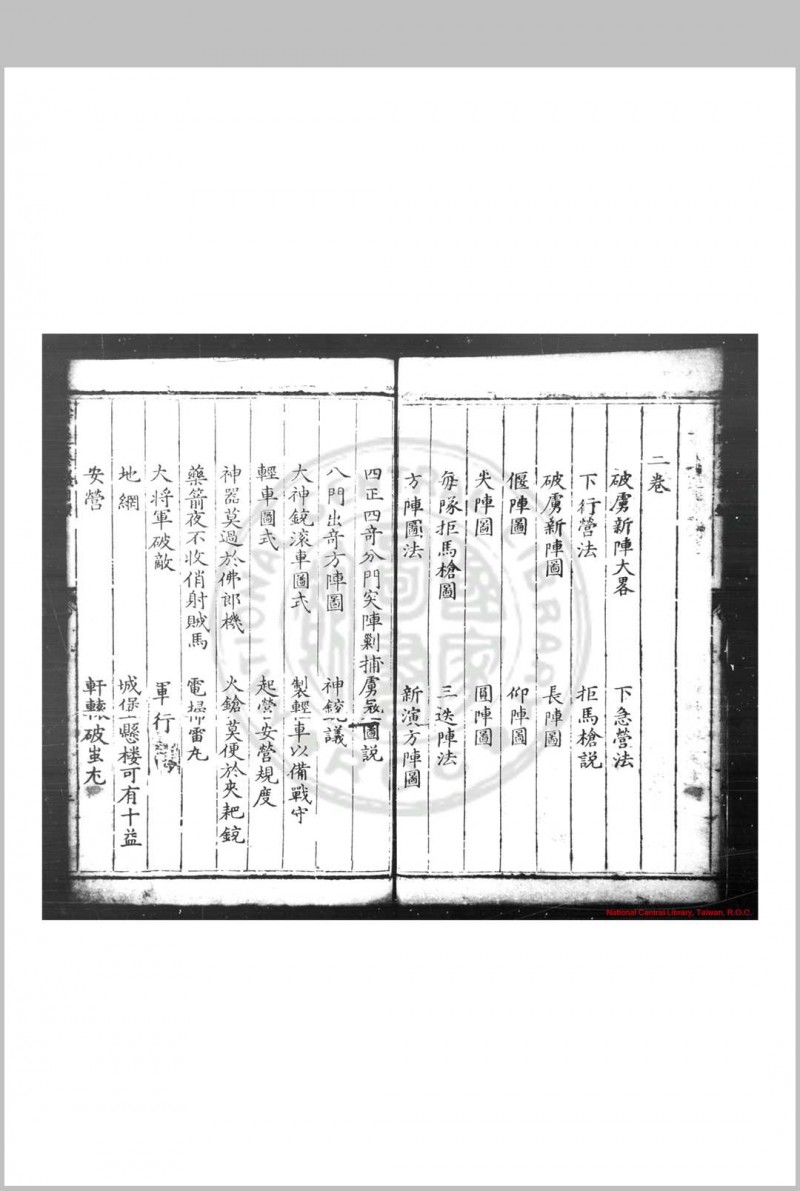 二卷
破虜新陣大畧 下急營法
下行營法 拒馬槍説
破虜新陣圖 長陣圖
偃陣圖 仰陣圖
尖陣圖 圓陣圖
每隊拒馬槍圖 三迭陣法
方陣圖法 新演方陣圖
四正四奇分門突陣剿捕虜寇圖説
八門出奇方陣圖 神銃議
大神銃滚車圖式 製輕車以備戰守
輕車圖式 起營安營規度
神器莫過於佛郎機 火鎗莫便於夾耙銃
藥箭夜不收俏射賊馬 電掃雷丸
大将軍破敵 軍行
地網 城堡懸楼可有十益
安營 軒轅破蚩尤
National Central Library, Taiwan, R.O.C.